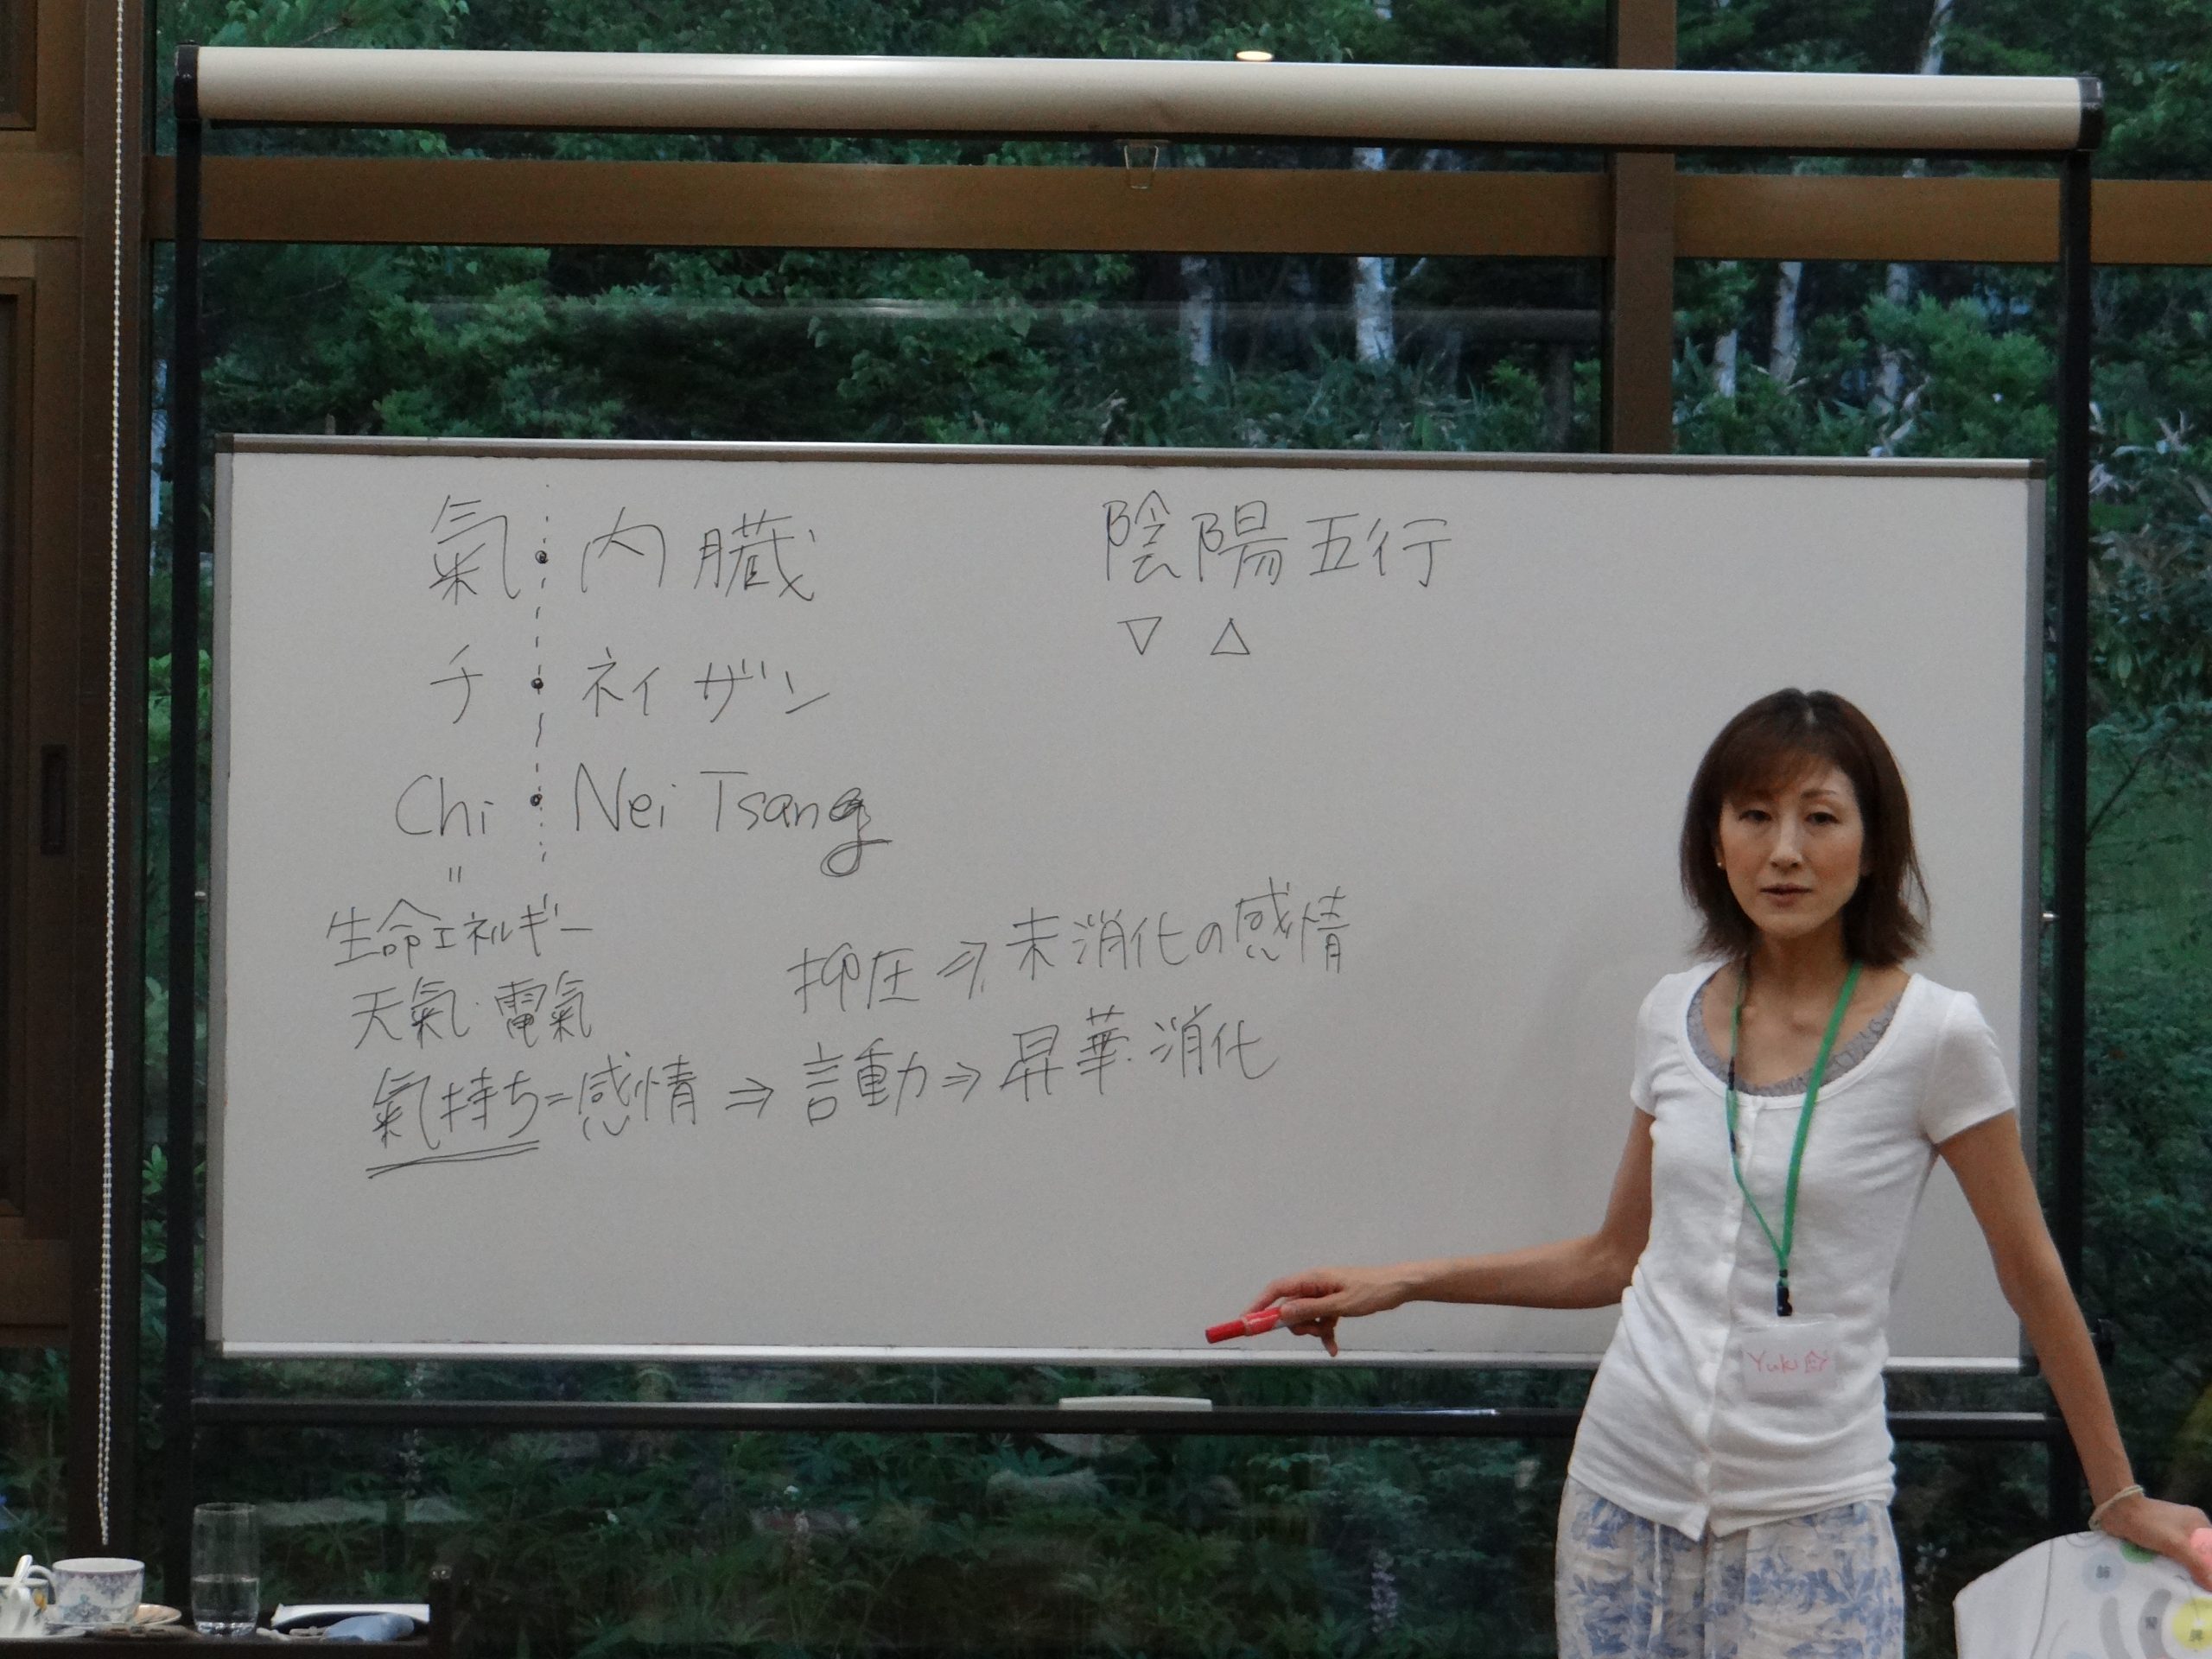 氣・内臓
チ・ネイザン
Chi・Nei Tsang
〃
生命エネルギー
天氣・電氣
氣持ち=感情⇒言動⇒昇華・消化
抑圧⇒未消化の感情
陰陽五行
▽ △
Yuki
肺
脾